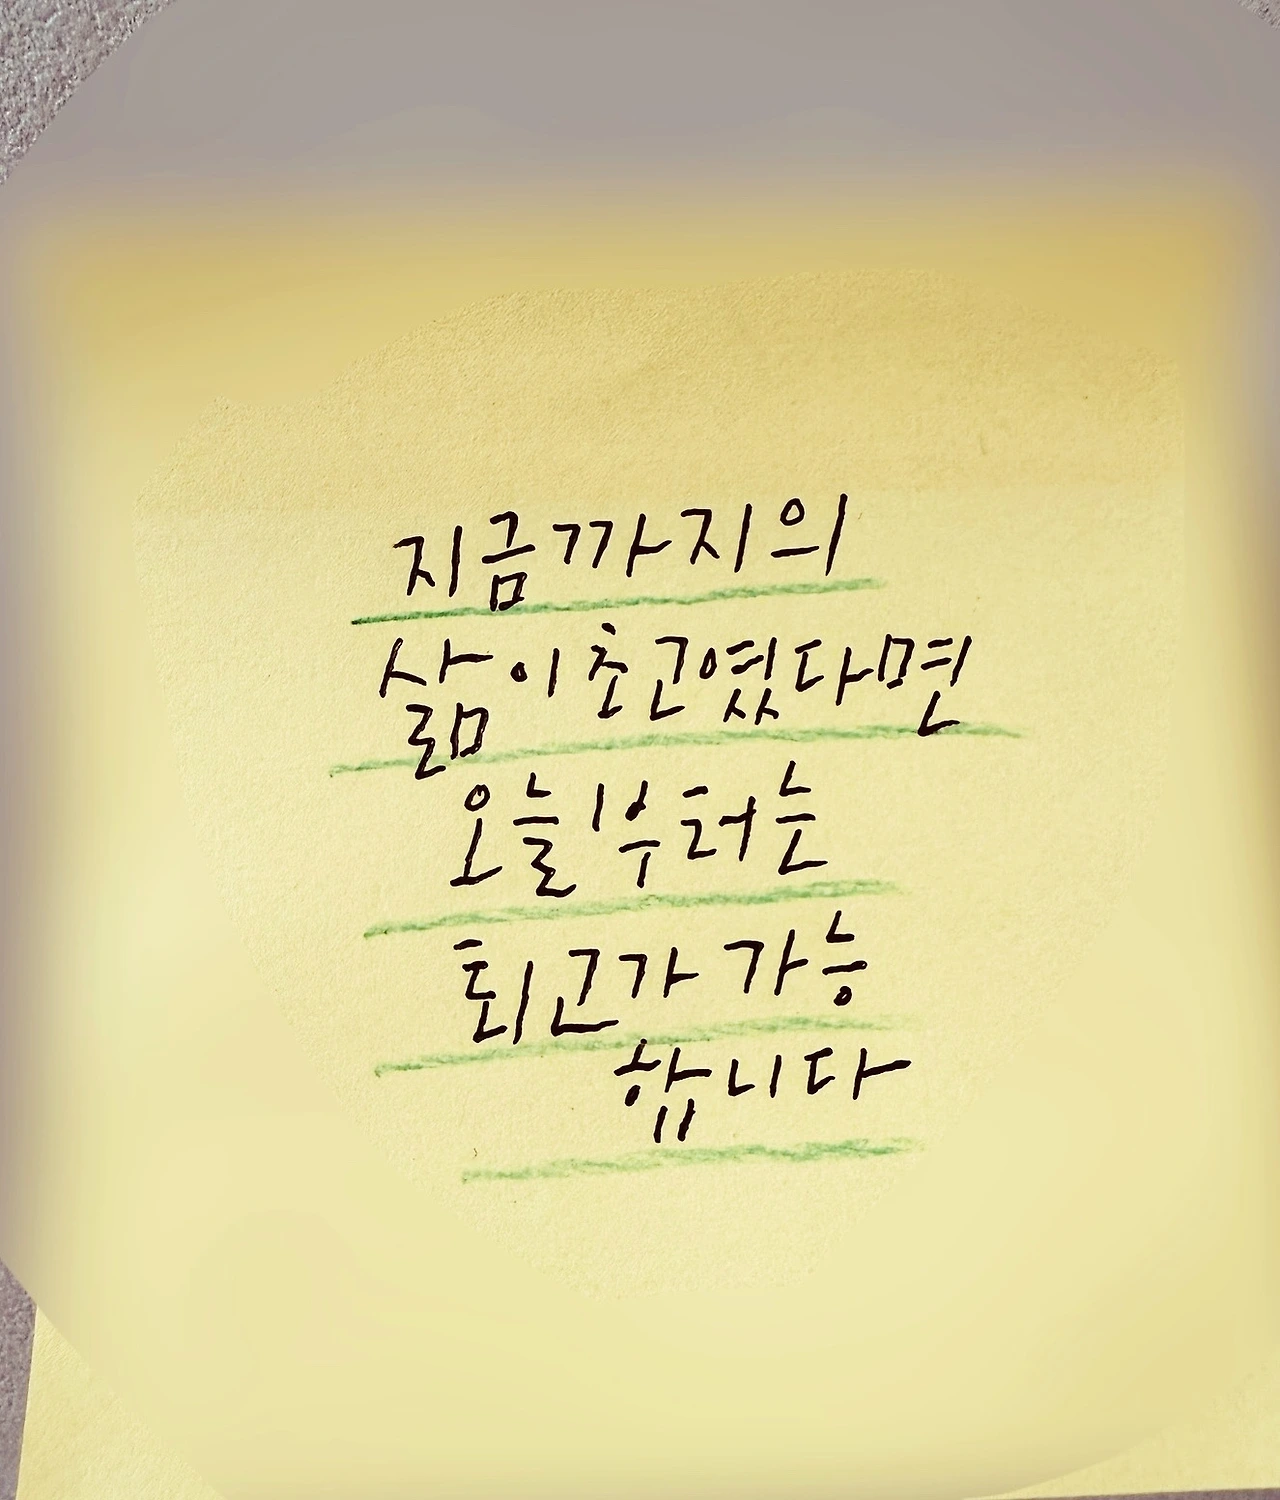 지금까지의
삶이 초고였다면
오늘부터는
퇴고가 가능
합니다